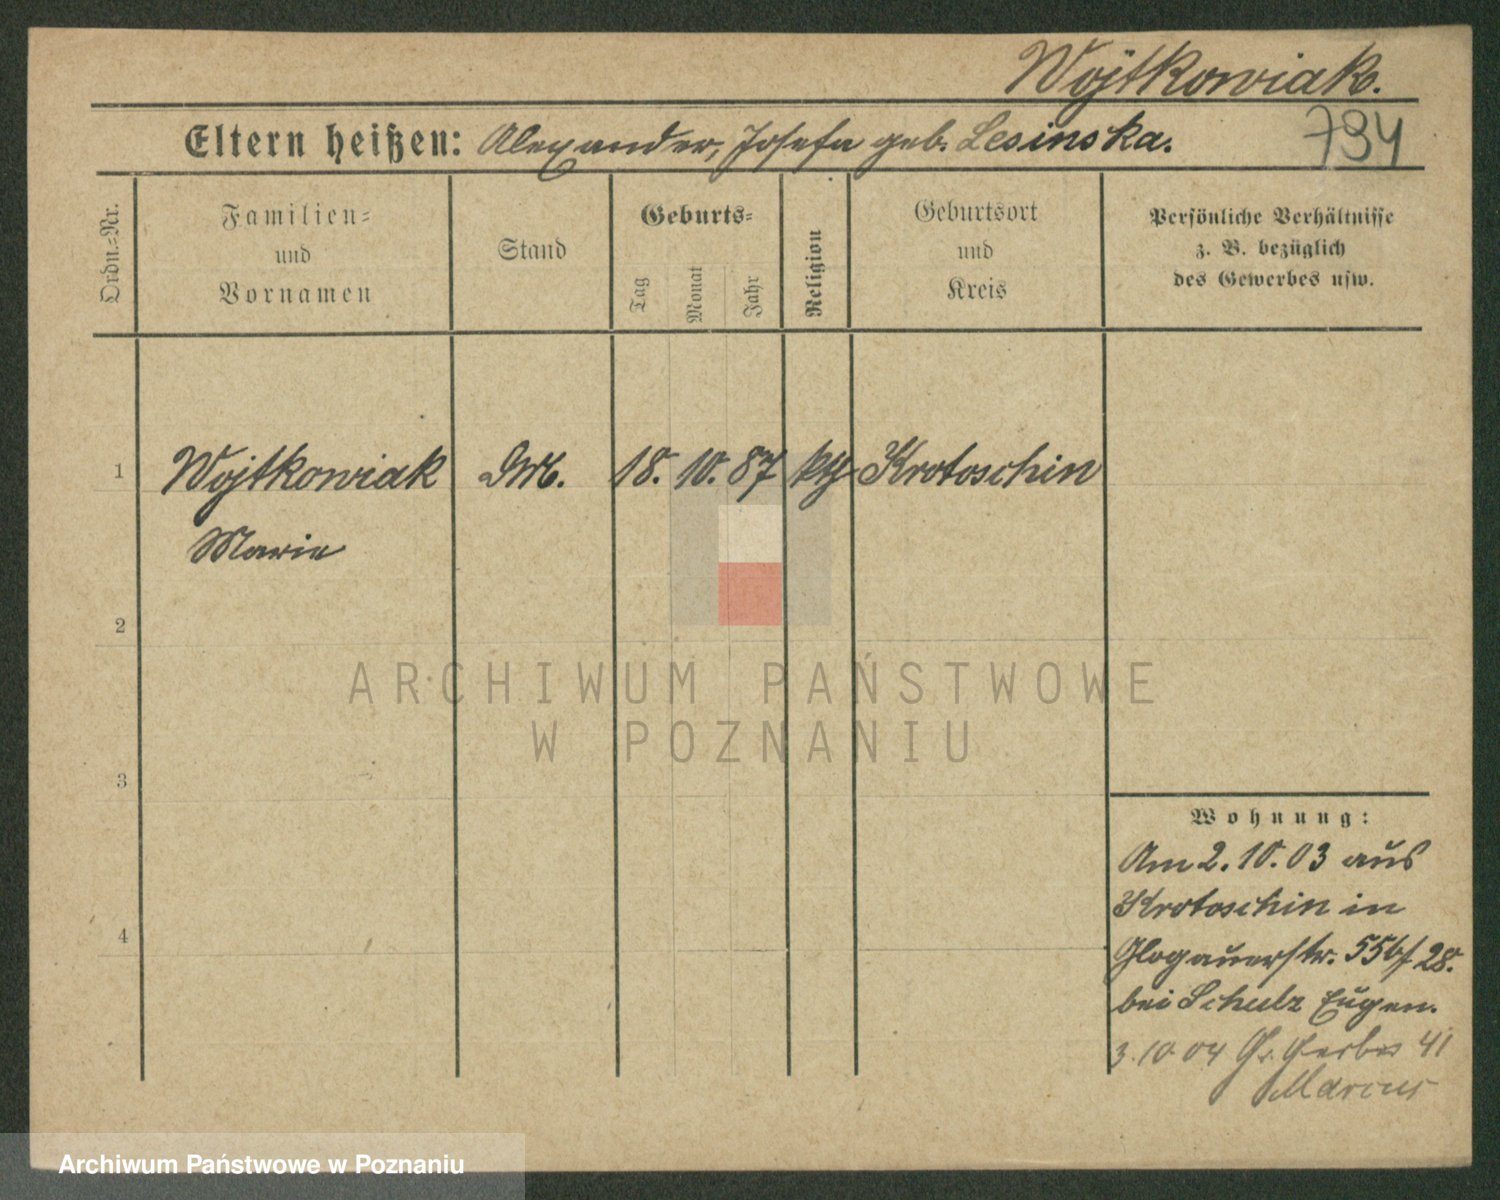 Wojtkowiak.
Eltern heißen: Alexander, Josefa geb. Lesinska.
794
Ordn.-Nr.
Familien-
und
Vornamen
Stand
Geburts-
Tag
Monat
Jahr
Religion
Geburtsort
und
Kreis
Persönliche Verhältnisse
z. B. bezüglich
des Gewerbes usw.
1 Wojtkowiak 18. 10. 87 kth Krotoschin
Marie
2
3
4
Wohnung:
Am 2. 10. 03 aus
Krotoschin in
Glogauerstr. 28.
bei Schulz Eugen.
3. 10 04 Gr. Gerber 41
Marcus
ARCHIWUM PAŃSTWOWE
W POZNANIU
Archiwum Państwowe w Poznaniu